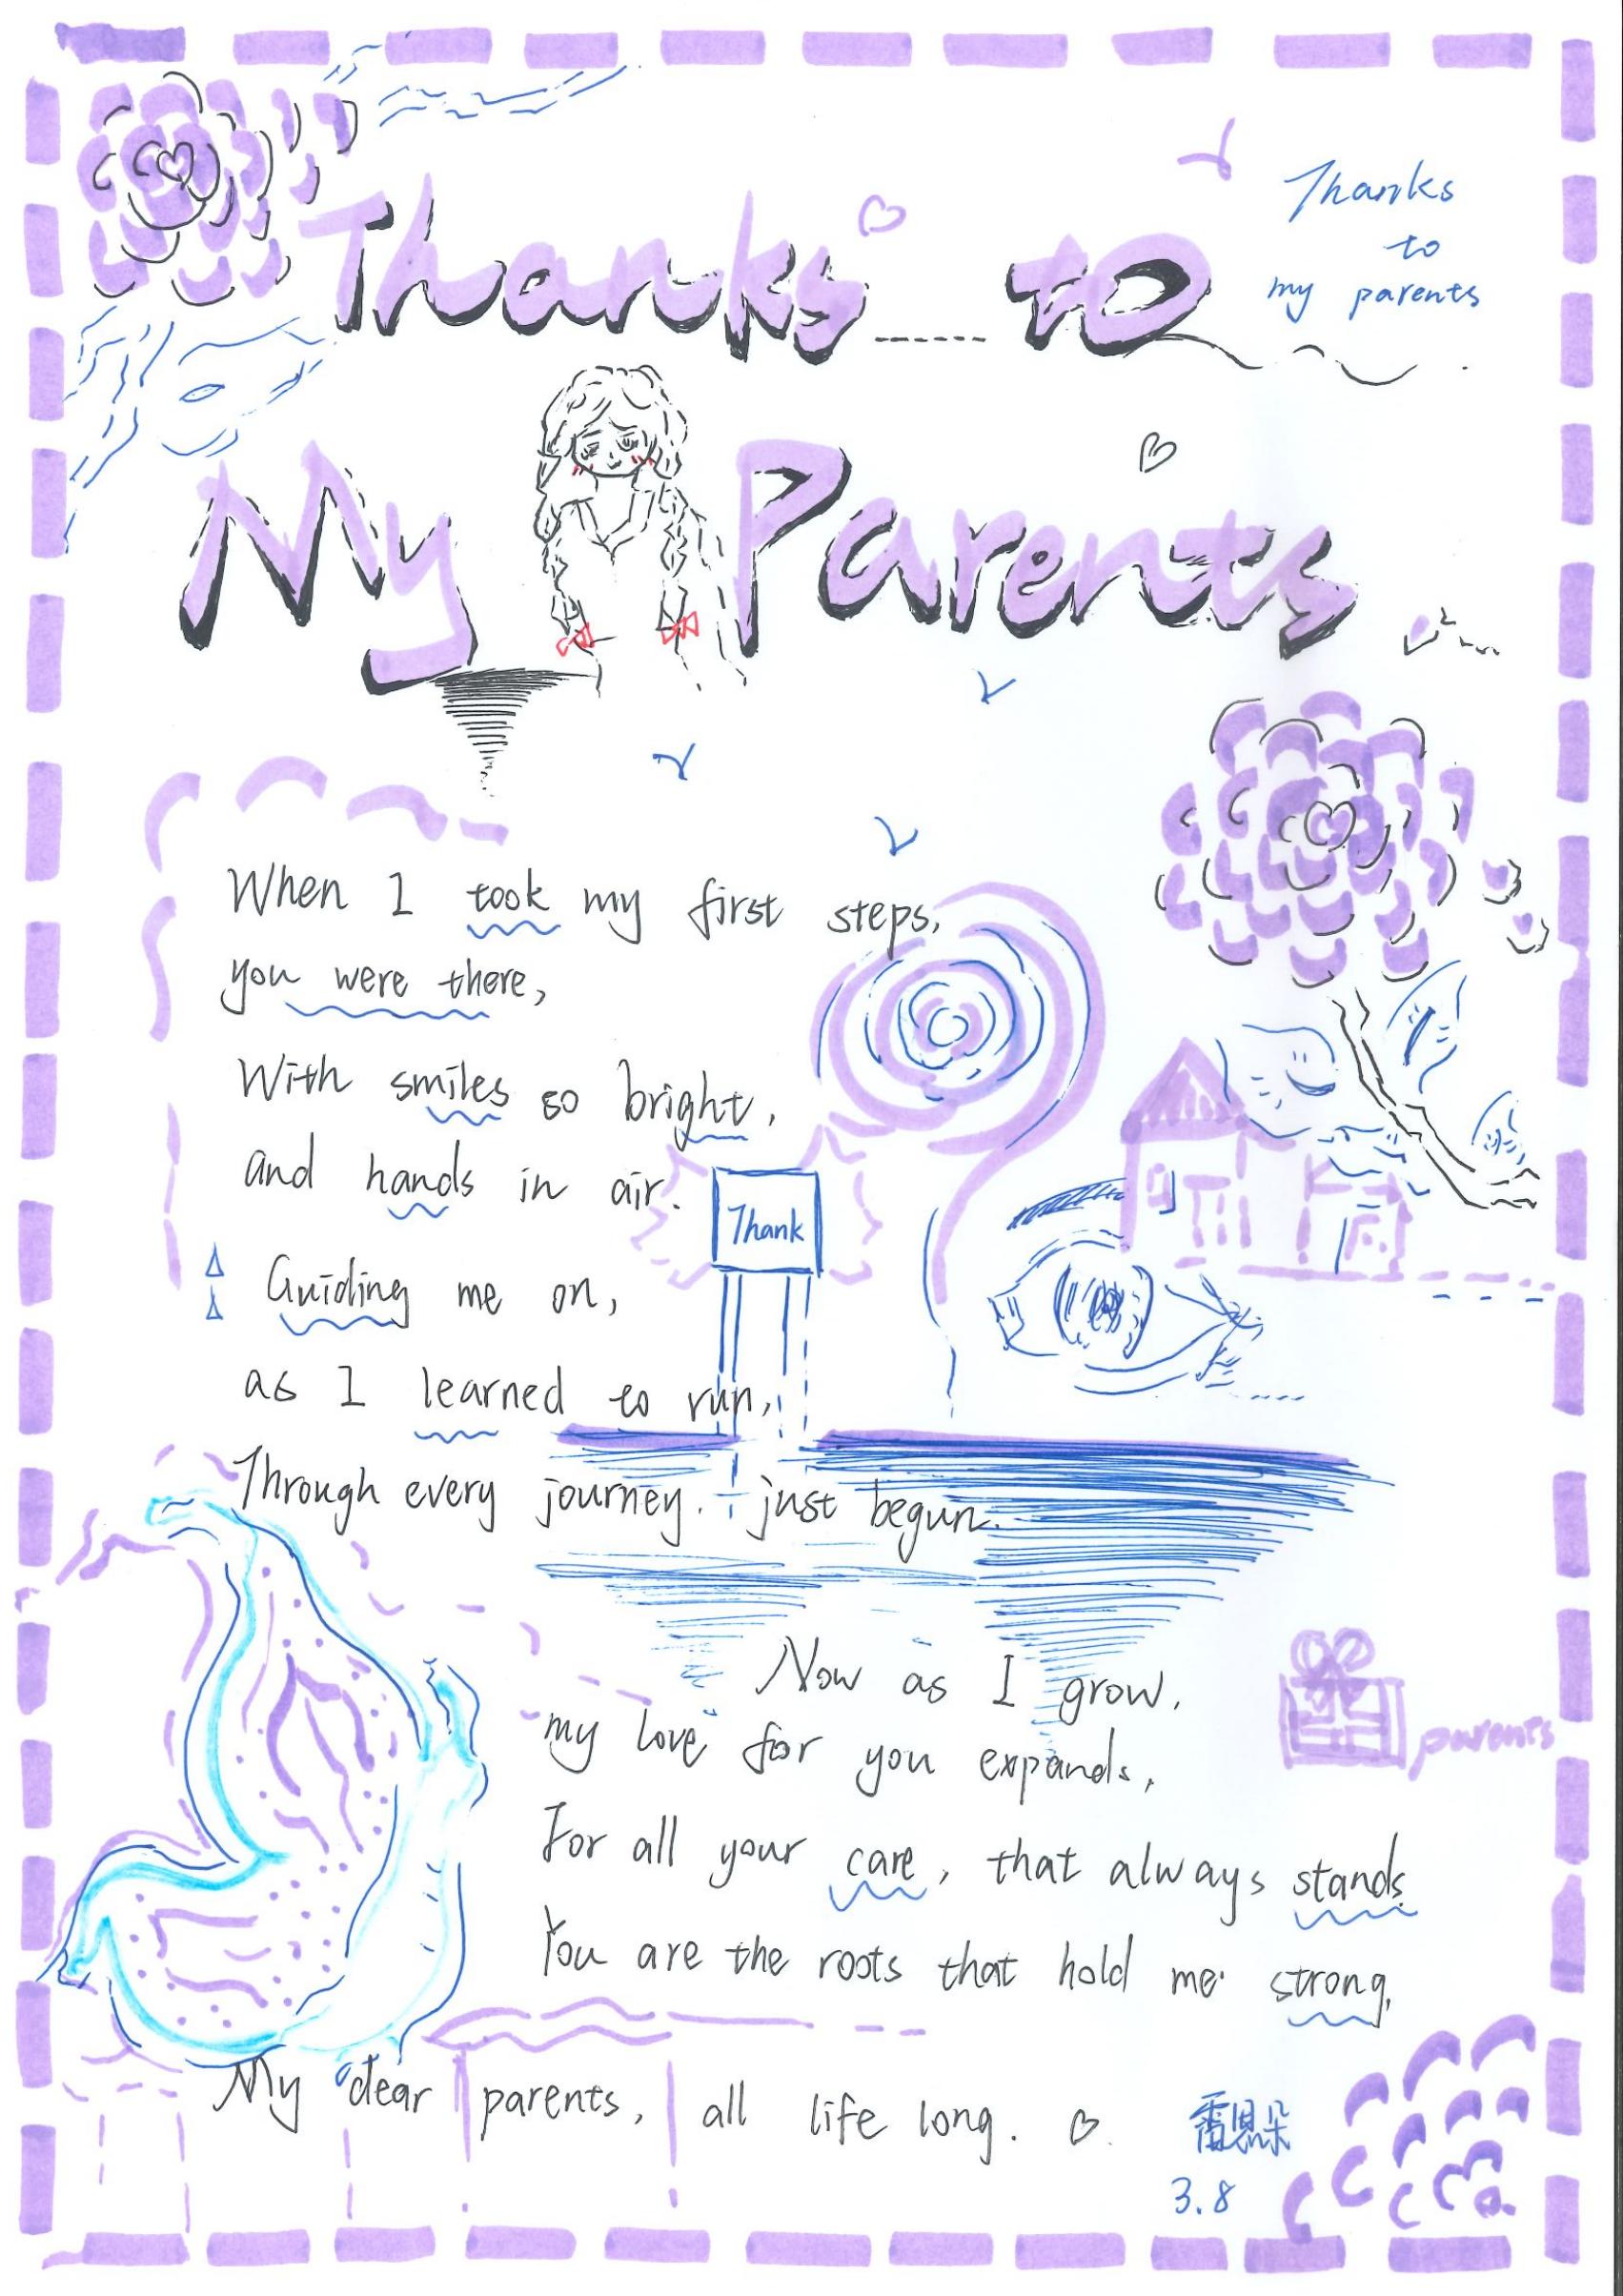 Thanks to
Thanks
to
my parents
My Parents
When I took my first steps,
you were there,
With smiles so bright,
and hands in air.
Thank
Guiding me on,
as I learned to run,
Through every journey. just begun.
Now as I grow,
my love for you expands,
parents
For all your care, that always stands
You are the roots that hold me strong,
My dear parents, all life long.
雷恩朵
3.8